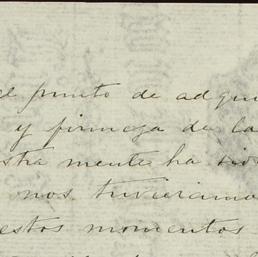 el punto de adqui
y firmeza de la
stra mente ha sid
nos tuvieramo
estos momentos